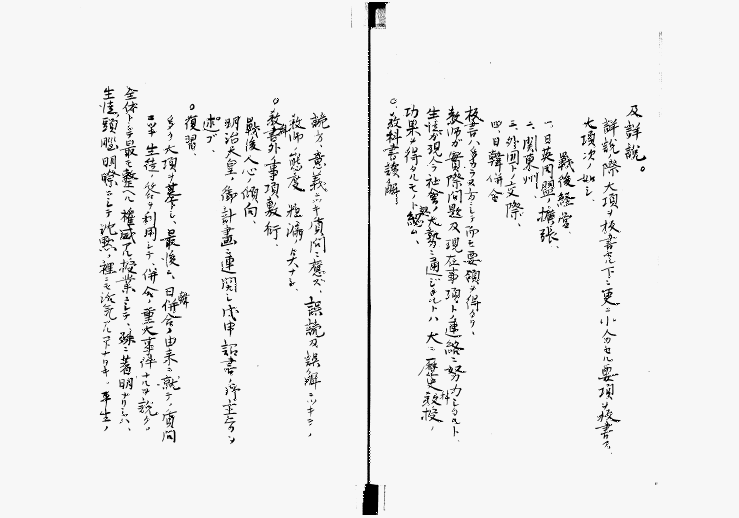 及詳説。
詳説ノ際大項ヲ板書セル下ニ更ニ小分セル要項ヲ板書ス、
大項次ノ如シ、
戰後経営、
一、日英同盟ノ擴張、
二、関東州、
三、外国トノ交際、
四、日韓併合、
板書ハ多カラズ少カラズシテ而モ要領ヲ得タリ、
教師ガ實際問題及現在事項トノ連絡ニ努力シタルト、
生徒ガ現今社會ノ大勢ニ通ジタルトハ大ニ歴史教授ノ
功果ヲ得タルモノト認ム、
○教科書読解
読方、意義ニツキ質問ニ應ズ、誤読及誤解ニツキテノ
教師ノ態度ノ
○教科書外ノ事項敷衍
戰後人心ノ傾向、
明治天皇ノ御計畫ニ連関シ戊申詔書ノ淳主旨ヲ
述ブ、
○復習、
多ク大項ヲ基トシ、最後ニ、日韓併合ノ由来ニ就テノ質問
ニツキ生徒ノ答ヲ利用シテ、併合ノ重大事件ナルヲ説ク、
全体トシテ最モ整ヘル権威アル授業ニシテ、殊ニ著明ナリシハ、
生徒ノ頭脳明瞭ニシテ沈黙ノ裡ニモ活気アルコトナリキ、平生ノ